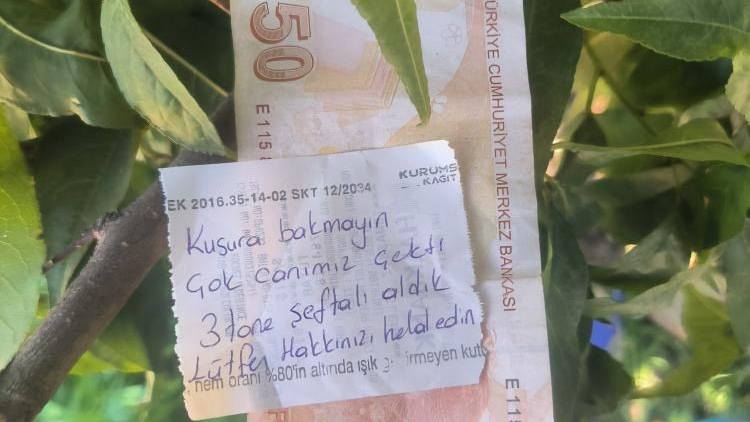 50
E 115
TÜRKİYE CUMHURİYET MERKEZ BANKASI
E 115
EK 2016.35-14-02 SKT 12/2034
KURUMS
KAĞIT
Kuşura bakmayın
Çok canımız çekti
3 tane şeftali aldık
Lütfen Hakkınızı helal edin
nem oranı %80'in altında ışık irmeyen kutu